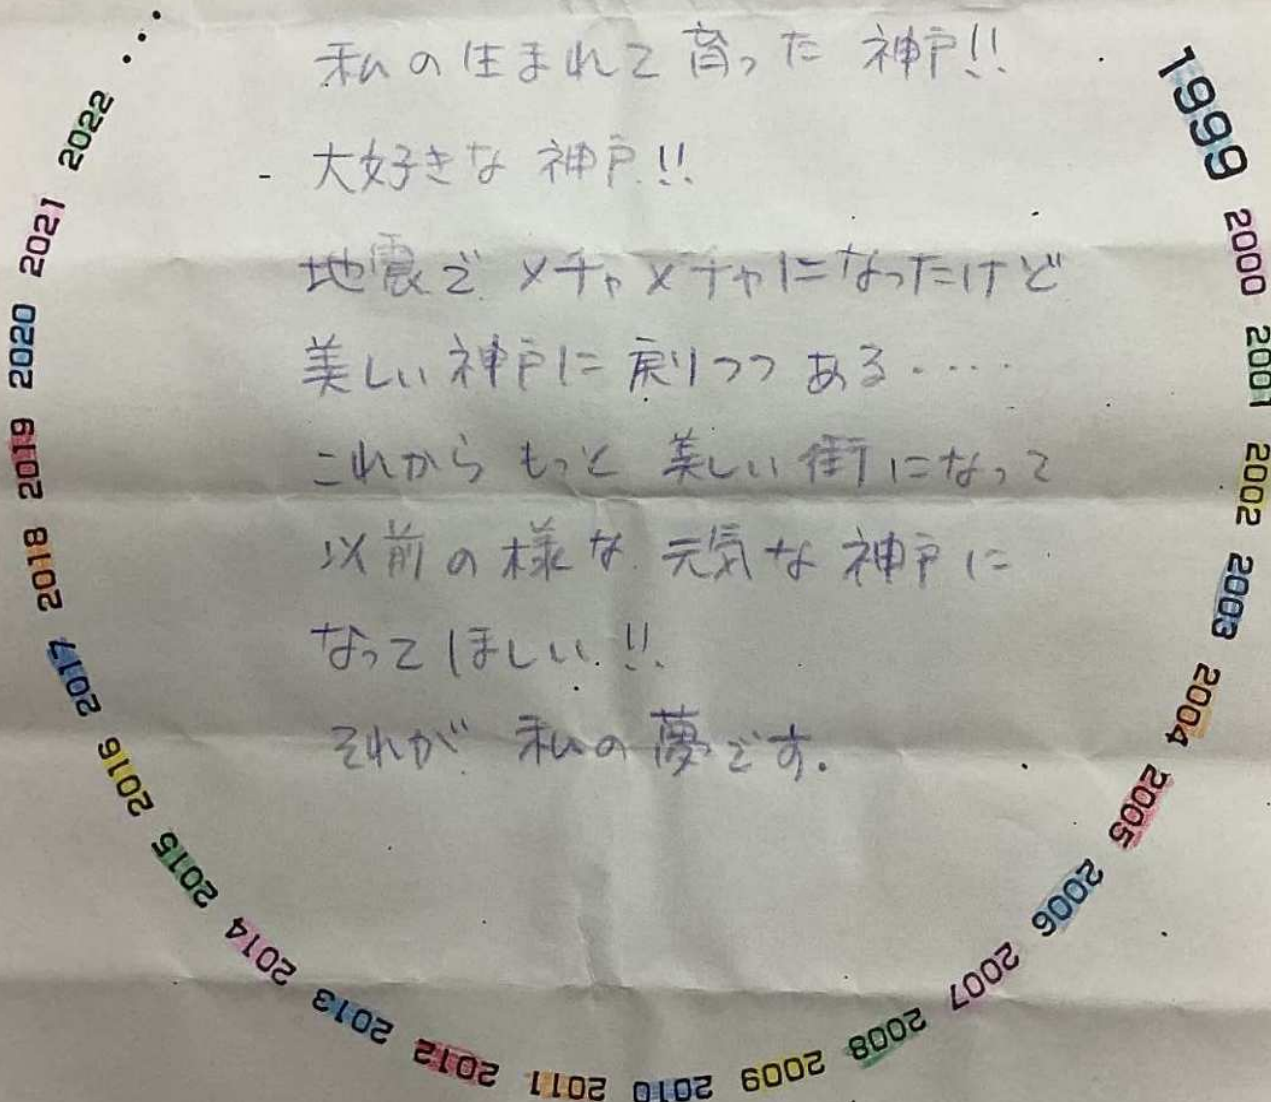 私の生まれて育った 神戸!!
大好きな 神戸!!
地震で メチャメチャになったけど
美しい 神戸に 戻りつつ ある‥‥
これから もっと 美しい 街になって
以前の様な 元気な 神戸に
なって ほしい!!
それが 私の夢です.
1999
2000
2001
2002
2003
2004
2005
2006
2007
2008
2009
2010
2011
2012
2013
2014
2015
2016
2017
2018
2019
2020
2021
2022
...